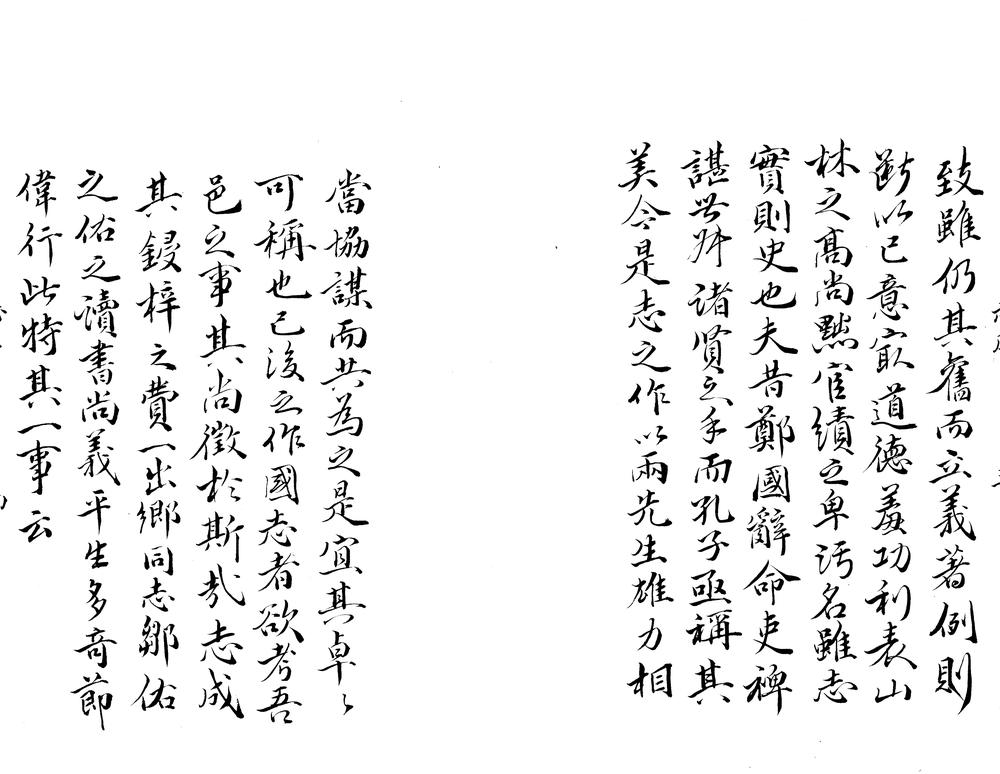 致雖仍其舊而立義著例則
斷以己意㝡道德羞功利表山
林之高尚黜官績之卑污名雖志
實則史也夫昔鄭國辭命更裨
諶世叔諸賢之手而孔子亟稱其
美今是志之作以兩先生雄力相
當協謀而共為之是宜其卓〻
可稱也已後之作國志者欲考吾
邑之事其尚徵於斯哉志成
其鋟梓之費一出鄉同志鄒佑
之佑之讀書尚義平生多奇節
偉行此特其一事云